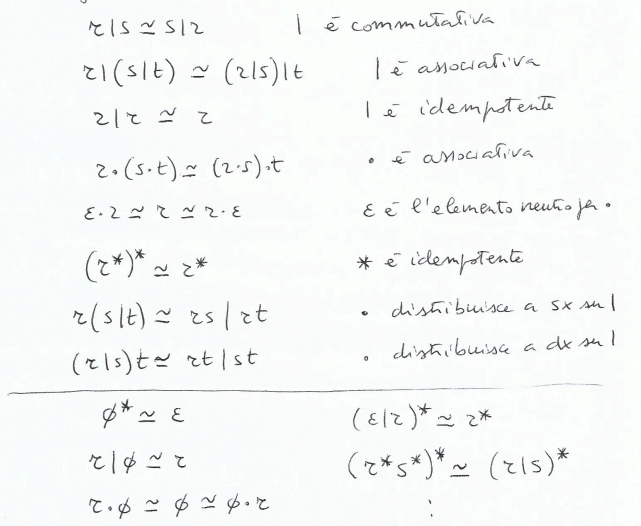 r|s ≃ s|r | è commutativa
r|(s|t) ≃ (r|s)|t | è associativa
r|r ≃ r | è idempotente
r·(s·t) ≃ (r·s)·t · è associativa
ε·r ≃ r ≃ r·ε ε è l'elemento neutro per ·
(r*)* ≃ r* * è idempotente
r(s|t) ≃ rs | rt · distribuisce a sx su |
(r|s)t ≃ rt | st · distribuisce a dx su |
ϕ* ≃ ε (ε|r)* ≃ r*
r|ϕ ≃ r (r*s*)* ≃ (r|s)*
r·ϕ ≃ ϕ ≃ ϕ·r ⋮